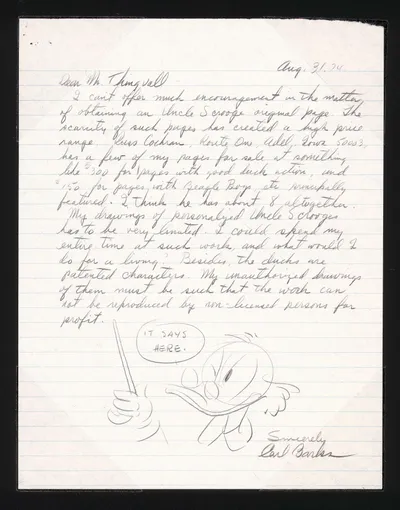 Aug. 31, 74
Dear Mr. Thingvall
I can't offer much encouragement in the matter
of obtaining an Uncle Scrooge original page. The
scarcity of such pages has created a high price
range. Russ Cochran, Route One, Adel, Iowa 50003,
has a few of my pages for sale at something
like $300 for pages with good duck action, and
for pages with Beagle Boys, etc principally
featured. I think he has about 8 altogether.
My drawings of personalized Uncle Scrooges
has to be very limited. I could spend my
entire time at such work, and what would I
do for a living? Besides, the ducks are
patented characters. My unauthorized drawings
of them must be such that the work can
not be reproduced by non-licensed persons for
profit.
IT SAYS
HERE.
Sincerely
Carl Barks